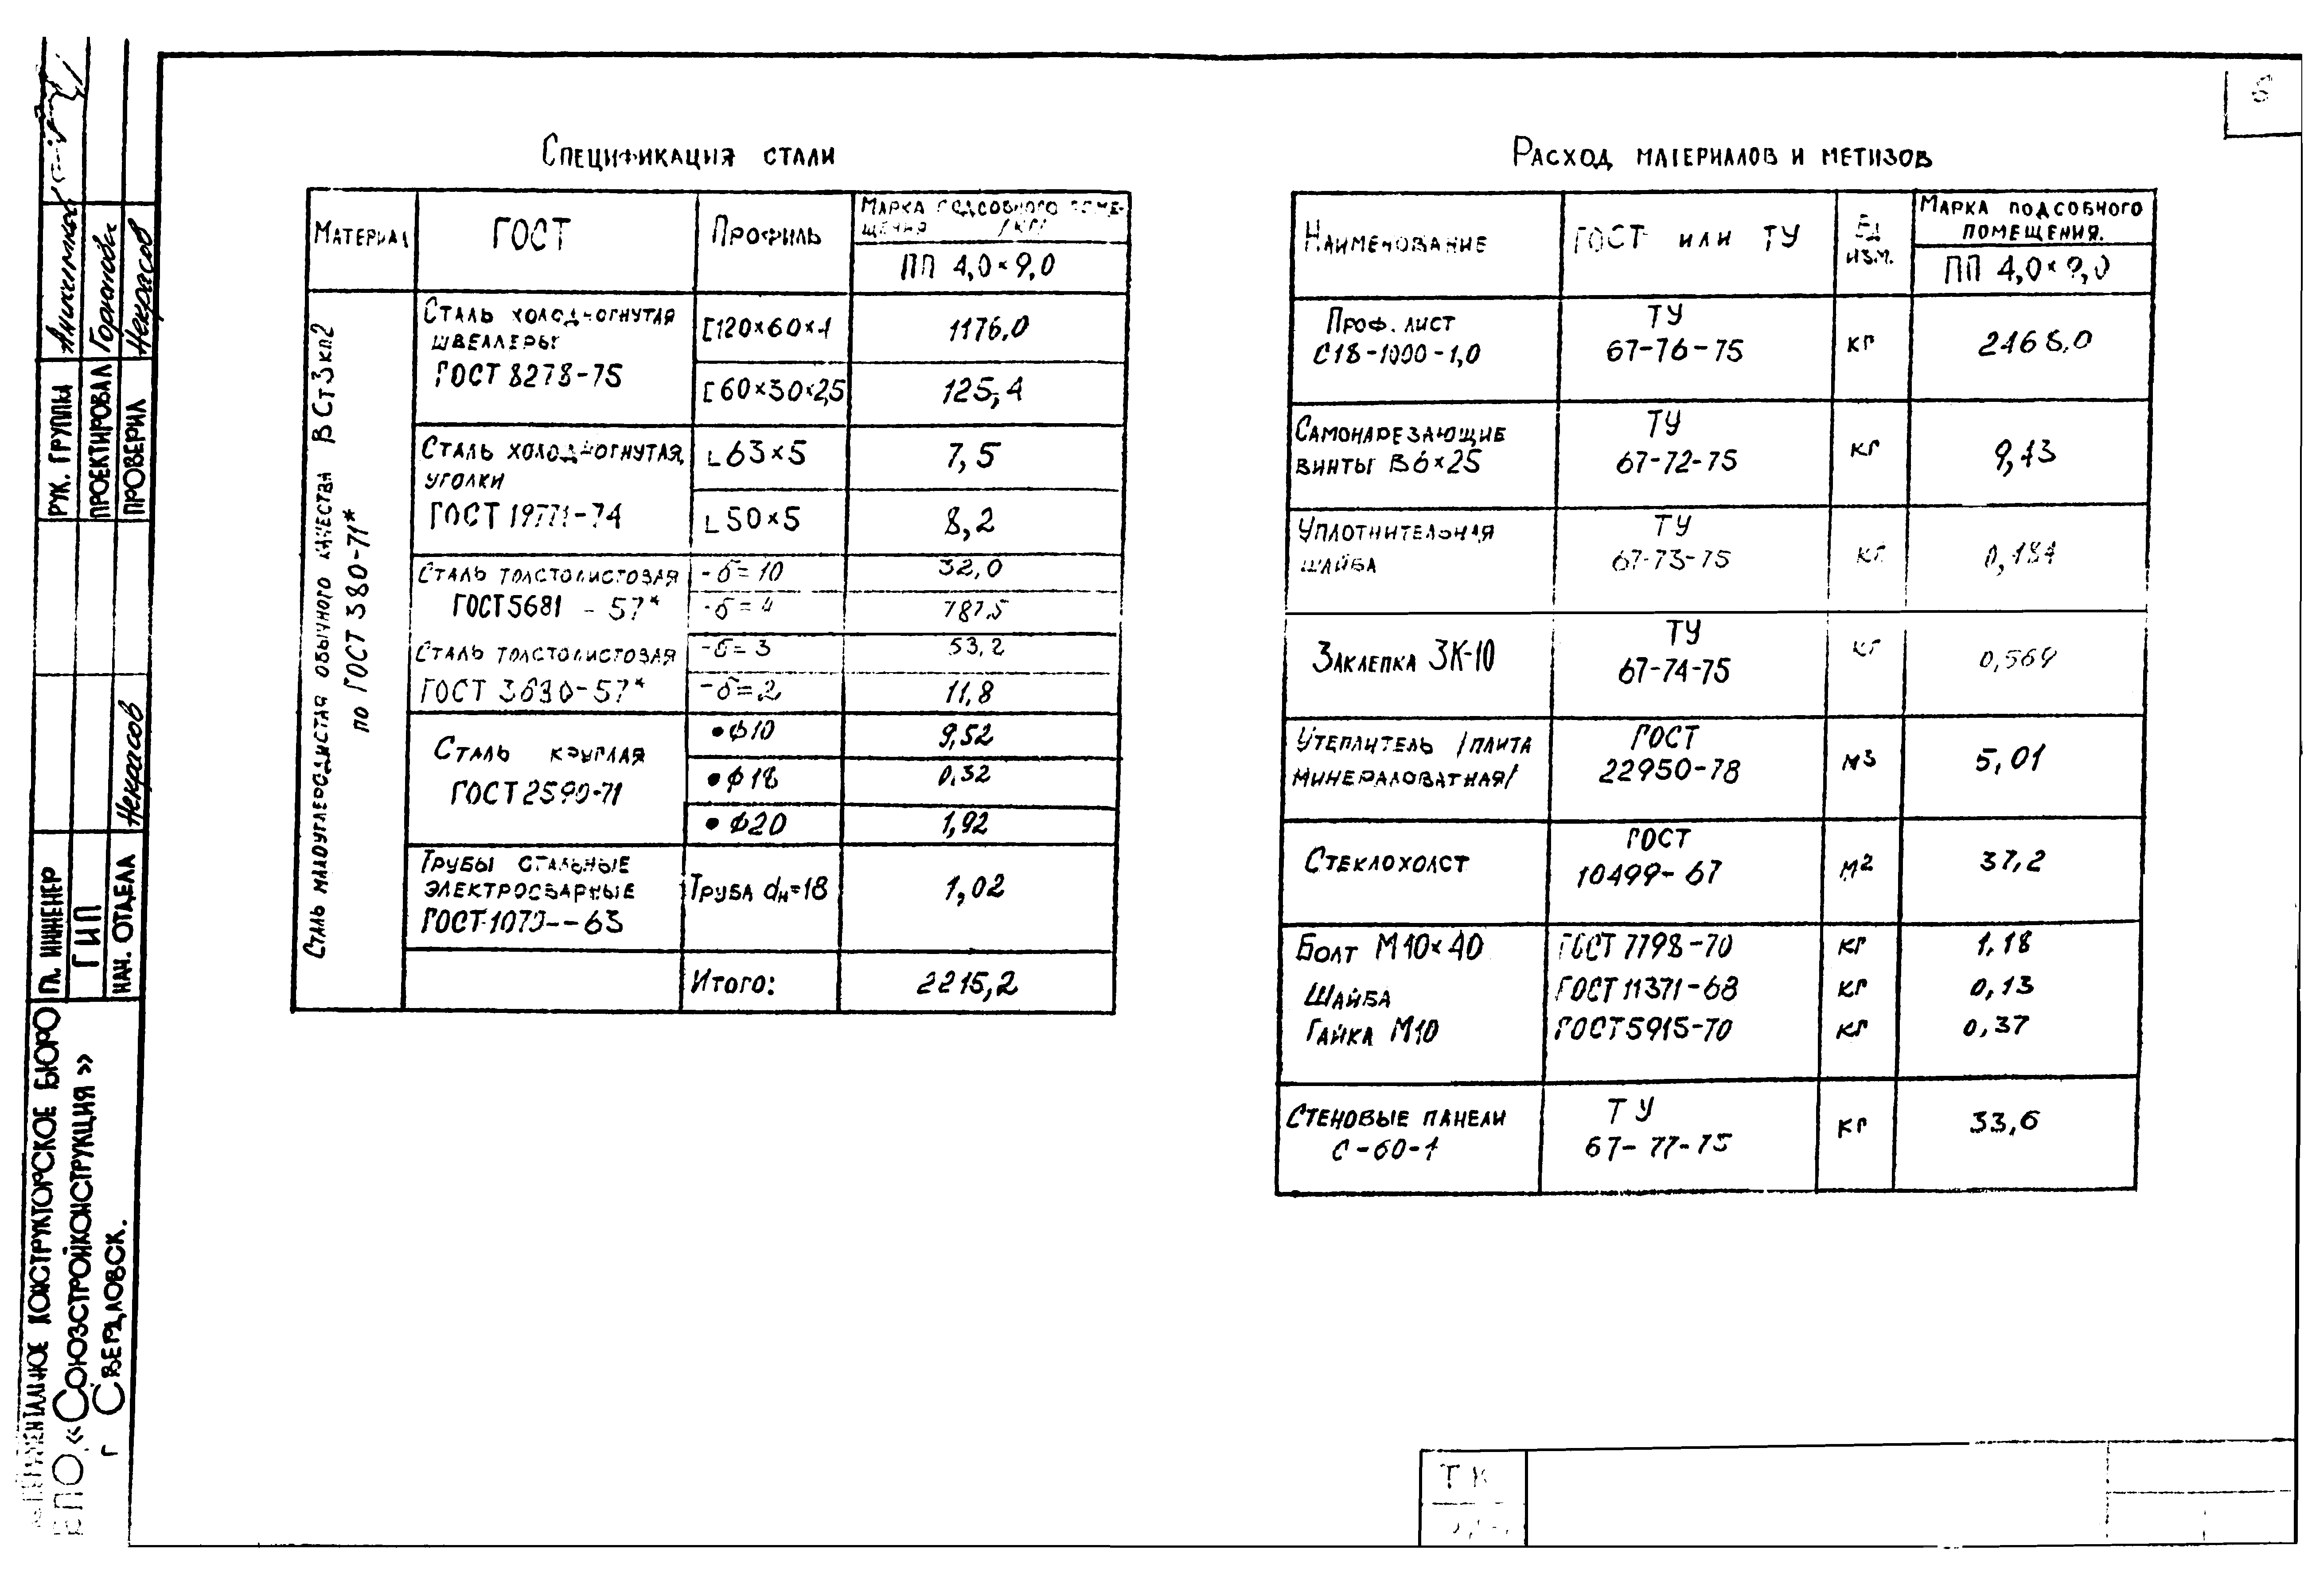 Спецификация стали
Материал
ГОСТ
Профиль
Марка подсобного поме-
щения /кг/
ПП 4,0×9,0
Сталь малоуглеродистая обычного качества ВСт3кп2
по ГОСТ 380-71*
Сталь холодногнутая
швеллеры
ГОСТ 8278-75
[120×60×4
1176,0
[60×30×2,5
125,4
Сталь холодногнутая,
уголки
ГОСТ 19771-74
∟63×5
7,5
∟50×5
8,2
Сталь толстолистовая
ГОСТ 5681 - 57*
-δ=10
32,0
-δ=4
787,5
Сталь толстолистовая
ГОСТ 3680-57*
-δ=3
53,2
-δ=2
11,8
Сталь круглая
ГОСТ 2590-71
•ф10
9,52
•ф18
0,32
•ф20
1,92
Трубы стальные
электросварные
ГОСТ 1070--63
Труба dн=18
1,02
Итого:
2215,2
Расход материалов и метизов
Наименование
ГОСТ или ТУ
Ед
изм.
Марка подсобного
помещения.
ПП 4,0×9,0
Проф. лист
С18-1000-1,0
ТУ
67-76-75
кг
2168,0
Самонарезающие
винты В6×25
ТУ
67-72-75
кг
9,13
Уплотнительная
шайба
ТУ
67-73-75
кг
0,184
Заклепка ЗК-10
ТУ
67-74-75
кг
0,569
Утеплитель /плита
минераловатная/
ГОСТ
22950-78
м3
5,01
Стеклохолст
ГОСТ
10499-67
м2
37,2
Болт М10×40
ГОСТ 7798-70
кг
1,18
Шайба
ГОСТ 11371-68
кг
0,13
Гайка М10
ГОСТ 5915-70
кг
0,37
Стеновые панели
С-60-1
ТУ
67-77-75
кг
33,6
Рук. группы
Аникина
Проектировал
Горюнова
Проверил
Некрасов
Гл. инженер
ГИП
Нач. отдела
Некрасов
конструкторское бюро
«Союзстройконструкция»
г Свердловск.
ТК